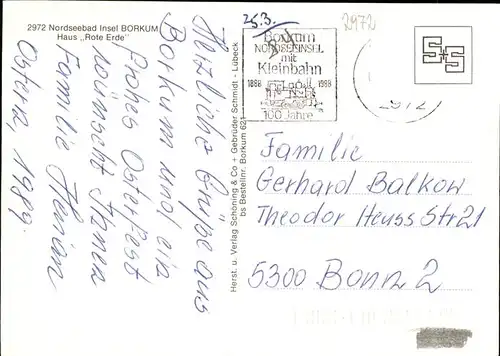 2972 Nordseebad Insel BORKUM
Haus „Rote Erde"
Herzliche Grüße aus
Borkum und ein
frohes Osterfest
wünscht Ihnen
Familie
Ostern, 1989.
Herst. u. Verlag Schöning & Co + Gebrüder Schmidt - Lübeck
bs Bestellnr. Borkum 621
25.3.
2972
Borkum
NORDSEEINSEL
mit
Kleinbahn
1888 1988
100 Jahre
Familie
Gerhard Balkow
Theodor Heuss Str 21
5300 Bonn 2